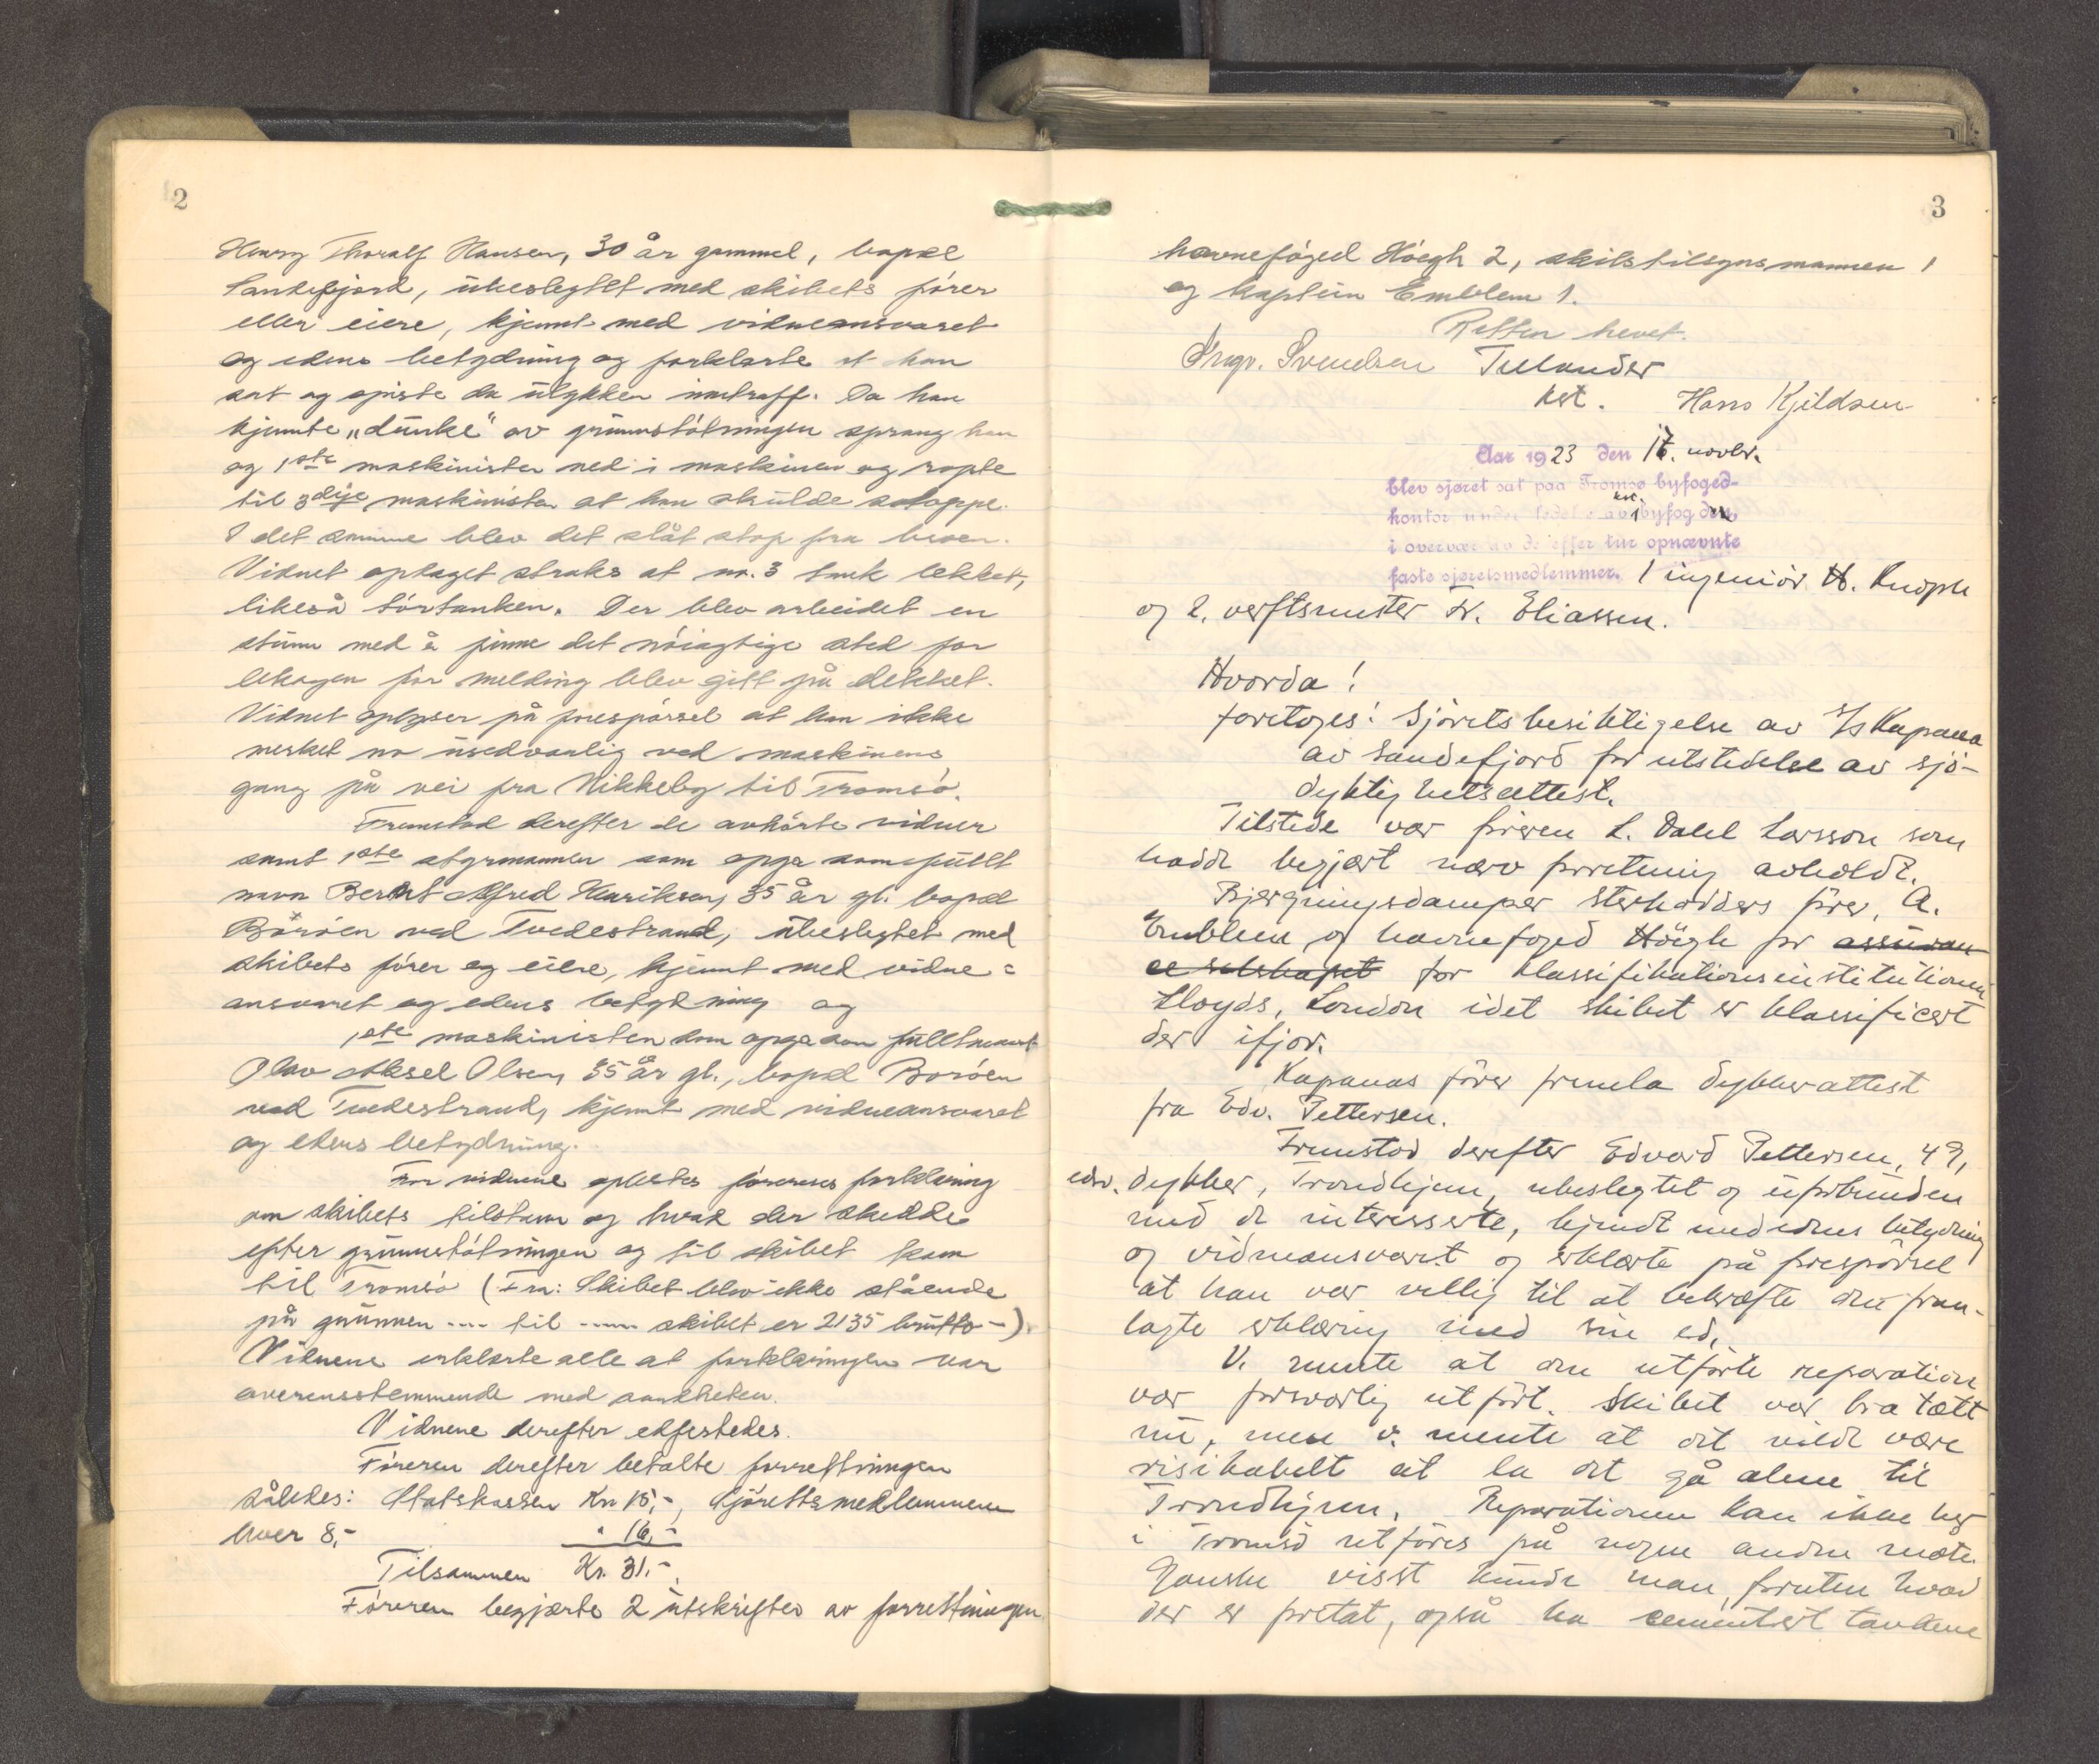 2
Henry Thoralf Hansen, 30 år gammel, bopæl
Sandefjord, ubeslegtet med skibets fører
eller eiere, kjennt med vidneansvaret
og edens betydning og forklarte at han
sat og spiste da ulykken inntraff. Da han
kjennte „dunke" av grunnstøtningen sprang han
og 1ste maskinisten ned i maskinen og ropte
til 3dje maskinisten at han skulde stoppe.
I det samme blev det slåt stop fra broen.
Vidnet opdaget straks at no. 3 tank lekket,
likeså tørtanken. Der blev arbeidet en
stunn med å finne det nøiagtige sted for
lekagen før melding blev gitt på dekket.
Vidnet oplyser på forespørsel at han ikke
merket no usedvanlig ved maskinens
gang på vei fra Nikkeby til Tromsø.
Fremstod derefter de avhørte vidner
samt 1ste styrmannen som opga som fullt
navn Bernt Alfred Henriksen, 35 år gl. bopæl
Borøen ved Tvedestrand, ubeslegtet med
skibets fører og eiere, kjennt med vidne=
ansvaret og edens betydning og
1ste maskinisten som opga som fullt navn
Olav Aksel Olsen, 35 år gl., bopæl Borøen
ved Tvedestrand, kjennt med vidneansvaret
og edens betydning.
For vidnene oplestes førerens forklaring
om skibets tilstann og hvad der skedde
efter grunnstøtningen og til skibet kom
til Tromsø (Fra: Skibet blev ikke stående
på grunnen .... til ..... skibet er 2135 brutto -).
Vidnene erklærte alle at forklaringen var
overensstemmende med sandheten.
Vidnene derefter edfestedes.
Føreren derefter betalte forretningen
således: Statskassen Kr. 15,-, Sjørettsmedlemmene
hver 8,- " 16,-
Tilsammen Kr. 31.-.
Føreren begjærte 2 utskrifter av forretningen
3
havnefoged Høegh 2, skibstilsynsmannen 1
og kaptein Emblem 1.
Retten hevet.
Ingv. Svendsen Tulander
kst. Hans Kjeldsen
Aar 1923 den 17. novbr.
blev sjøret sat paa Tromsø byfoged-
kontor under ledelse av kst. byfogden
i overvær av de efter tur opnævnte
faste sjøretsmedlemmer. 1 ingeniør H. Knoph
og 2. verftsmester Fr. Eliassen.
Hvorda!
foretoges: Sjøretsbesiktigelse av s/s Kapana
av Sandefjord for utstedelse av sjø-
dyktighetsattest.
Tilstede var føreren L. Dahl Larsson som
hadde begjært nærv. forretning avholdt.
Bjergningsdamper Sterkodders fører, A.
Emblem og havnefoged Høegh for assuran
ce selskapet for klassifikationsinstitutionen
Lloyds, London idet skibet er klassificert
der ifjor.
Kapanas fører fremla dykkerattest
fra Edv. Pettersen.
Fremstod derefter Edvard Pettersen, 49,
edv. dykker, Trondhjem, ubeslegtet og uforbunden
med de interesserte, kjendt med edens betydning
og vidneansvaret og erklærte på forespørsel
at han var villig til at bekræfte den frem-
lagte erklæring med sin ed.
V. mente at den utførte reparation
var forsvarlig utført. Skibet var bra tætt
nu, men v. mente at det vilde være
risikabelt at la det gå alene til
Trondhjem. Reparationen kan ikke her
i Tromsø utføres på nogen anden måte.
Ganske visst kunde man, foruten hvad
der er foretat, også ha cementert tankene